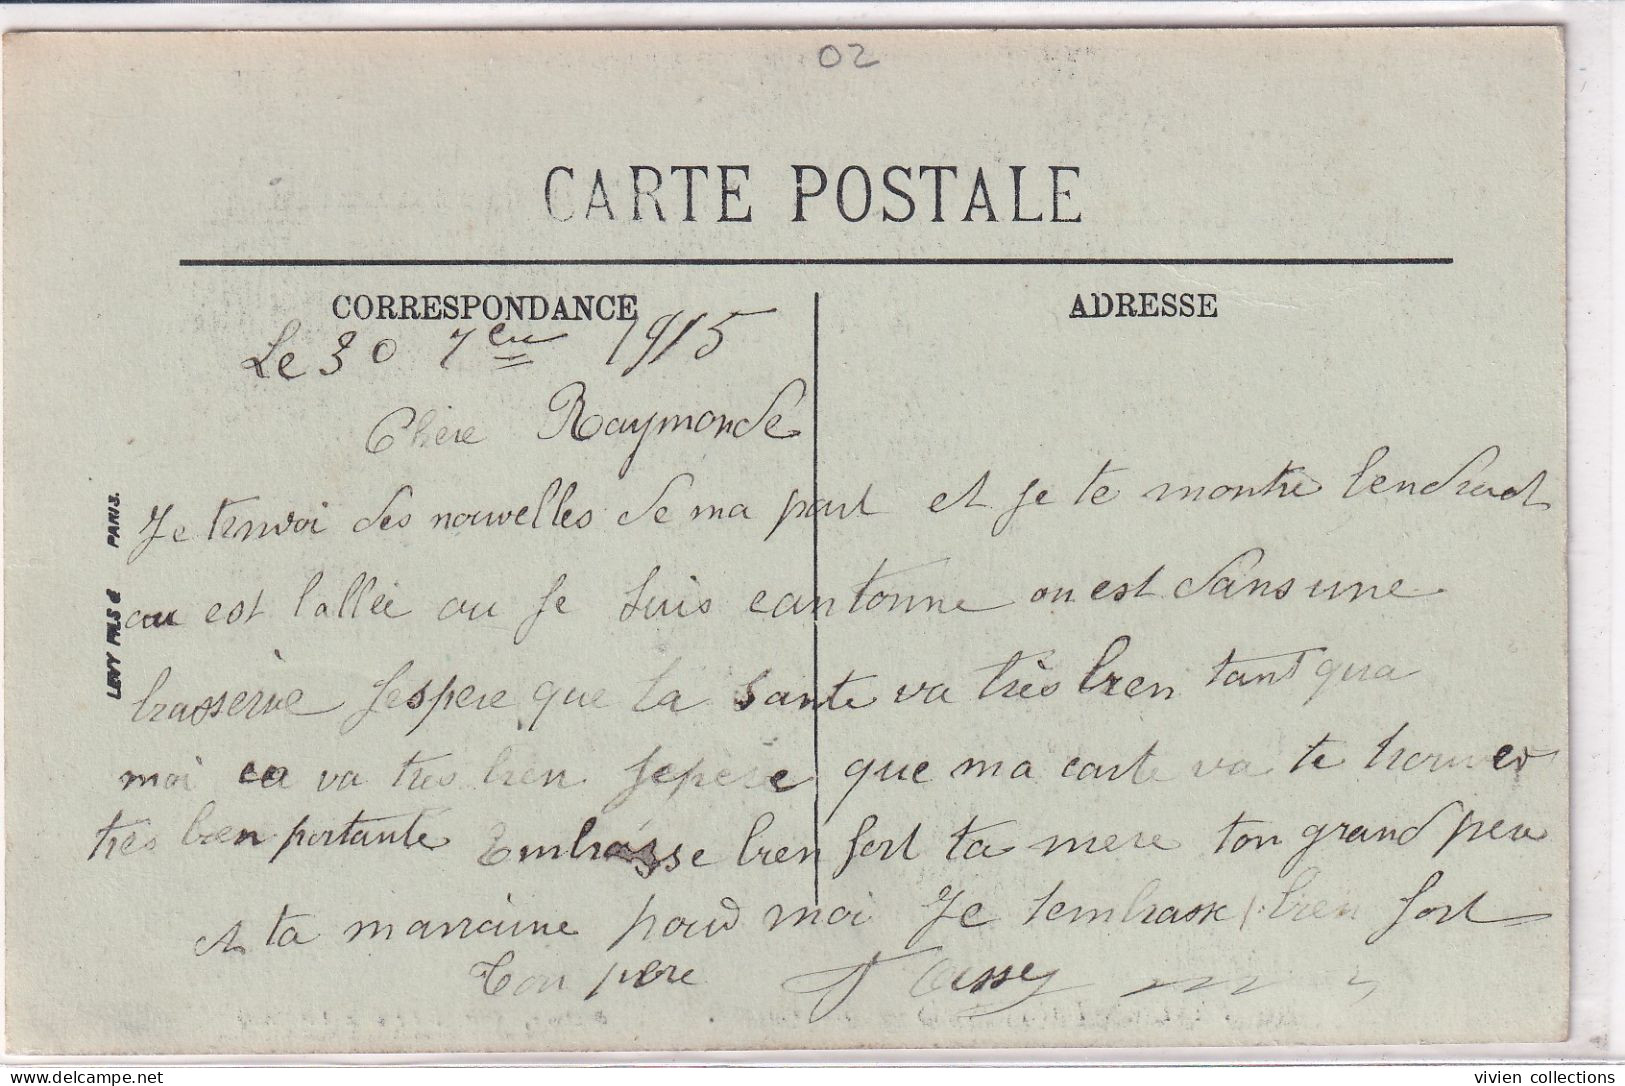 02
CARTE POSTALE
CORRESPONDANCE
ADRESSE
Le 30 7bre 1915
Chère Raymonde
Je tenvoi des nouvelles de ma part et je te montre lendroit
ou est l'allée ou je suis cantonne on est dans une
brasserie Jespere que ta sante va très bien tant qua
moi ca va tres bien Jepere que ma carte va te trouver
tres bien portante Embrasse bien fort ta mere ton grand pere
et ta marraine pour moi Je tembrasse bien fort
Ton pere
LEVY FILS & PARIS.
vivien collections